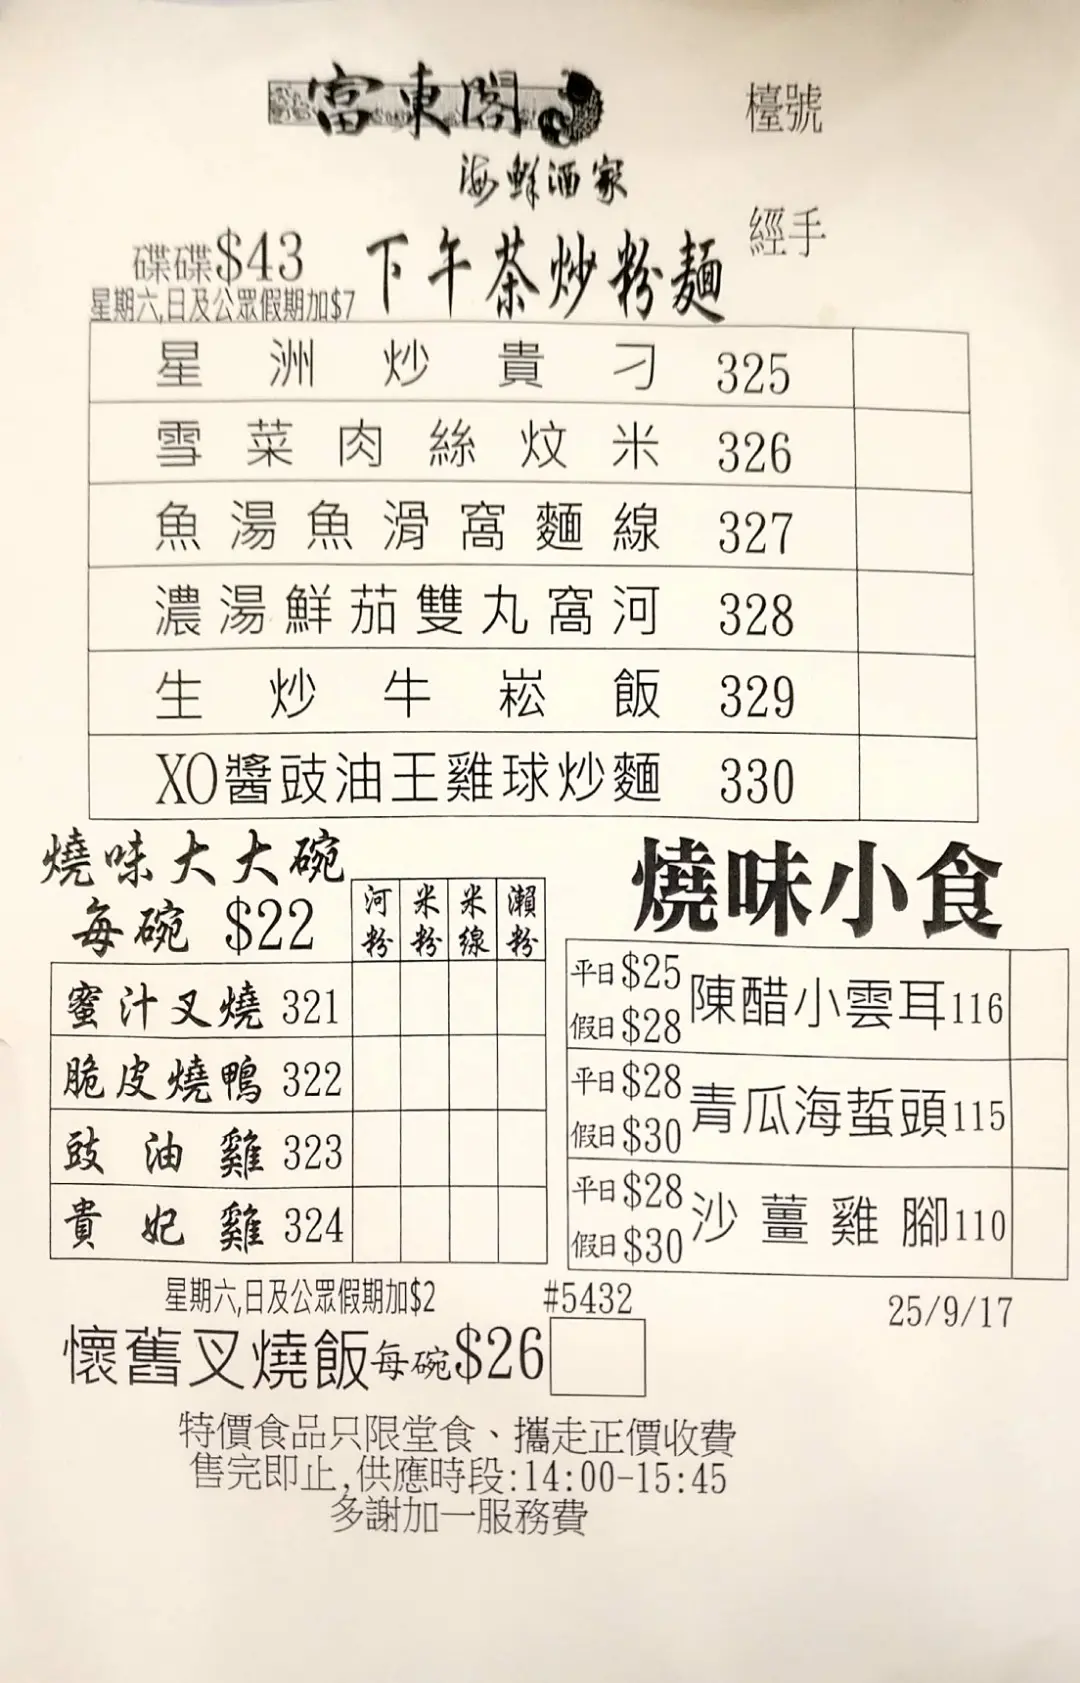 富東閣
海鮮酒家
檯號
經手
碟碟$43
星期六,日及公眾假期加$7
下午茶炒粉麵
星洲炒貴刁 325
雪菜肉絲炆米 326
魚湯魚滑窩麵線 327
濃湯鮮茄雙丸窩河 328
生炒牛崧飯 329
XO醬豉油王雞球炒麵 330
燒味大大碗
每碗 $22
河粉 米粉 米線 瀨粉
蜜汁叉燒 321
脆皮燒鴨 322
豉油雞 323
貴妃雞 324
星期六,日及公眾假期加$2
燒味小食
平日$25
假日$28
陳醋小雲耳116
平日$28
假日$30
青瓜海蜇頭115
平日$28
假日$30
沙薑雞腳110
#5432
25/9/17
懷舊叉燒飯每碗$26
特價食品只限堂食、攜走正價收費
售完即止,供應時段:14:00-15:45
多謝加一服務費